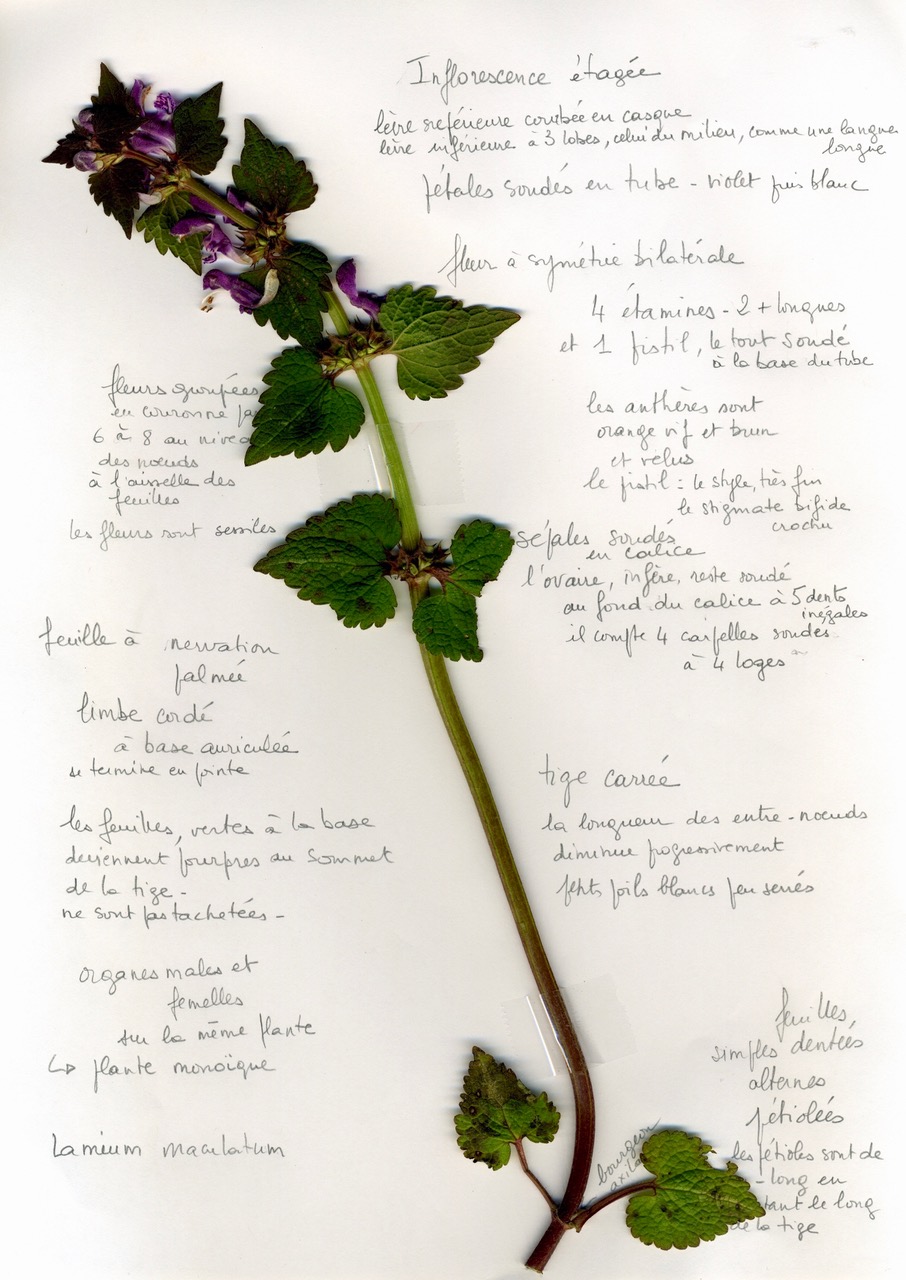 Inflorescence étagée
lèvre supérieure courbée en casque
lèvre inférieure à 3 lobes, celui du milieu, comme une langue
longue
pétales soudés en tube - violet puis blanc
fleur à symétrie bilatérale
4 étamines - 2 + longues
et 1 pistil, le tout soudé
à la base du tube
les anthères sont
orange vif et brun
et velus
le pistil : le style, très fin
le stigmate bifide
crochu
sépales soudés
en calice
l'ovaire, infère, reste soudé
au fond du calice à 5 dents
inégales
il compte 4 carpelles soudés
à 4 loges
fleurs groupées
en couronne
6 à 8 au nivea
des nœuds
à l'aisselle des
feuilles
les fleurs sont sessiles
feuille à nervation
palmée
limbe cordé
à base auriculée
se termine en pointe
les feuilles, vertes à la base
deviennent pourpres au sommet
de la tige -
ne sont pas tachetées -
organes males et
femelles
sur la même plante
↳ plante monoïque
Lamium maculatum
tige carrée
la longueur des entre-nœuds
diminue pogressivement
petits poils blancs peu serrés
feuilles
simples dentées
alternes
pétiolées
les pétioles sont de
- long en
tant le long
de la tige
bourgeon
axila